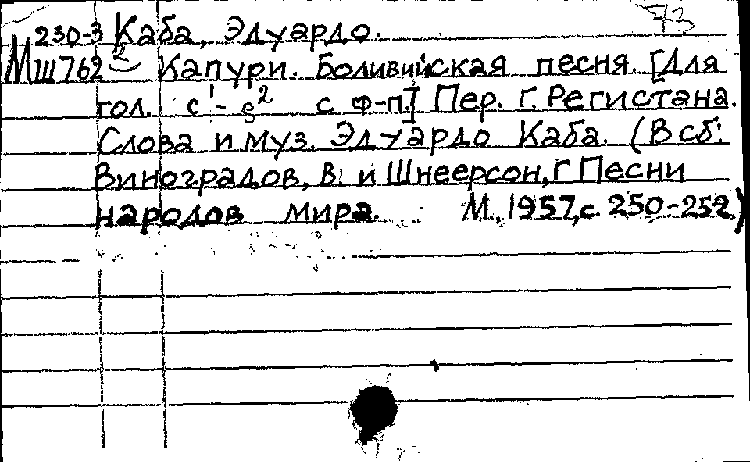 73
230-3 Каба, Эдуардо.
Мш762 Капури. Боливийская песня. [Для
гол. c¹-g² с ф-п.] Пер. Г. Регистана.
Слова и муз. Эдуардо Каба. (В сб:
Виноградов, В. и Шнеерсон, Г Песни
народов мира. М., 1957, с. 250-252)